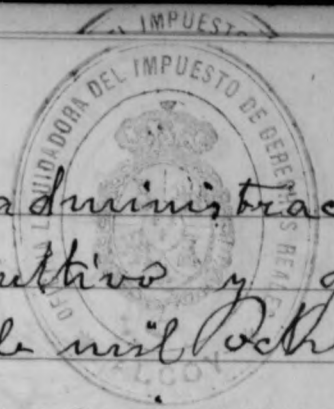 IMPUESTO
OFICINA LIQUIDADORA DEL IMPUESTO DE DERECHOS REALES
administrac
y
de mil ocho
ALCOY